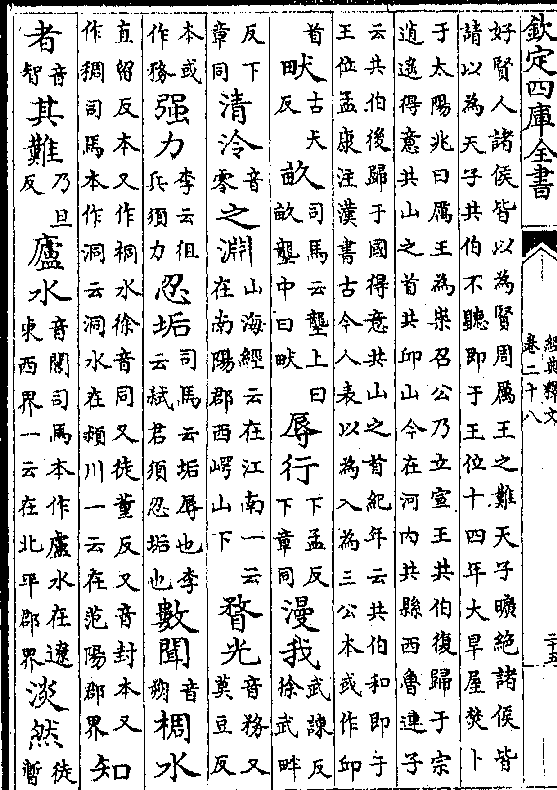 欽定四庫全書
經典釋文
卷二十八
二十五
好賢人諸侯皆以為賢周厲王之難天子曠絕諸侯皆
請以為天子共伯不聽即于王位十四年大旱屋焚卜
于太陽兆曰厲王為祟召公乃立宣王共伯復歸于宗
逍遥得意共山之首共邱山今在河内共縣西魯連子
云共伯後歸于國得意共山之首紀年云共伯和即于
王位孟康注漢書古今人表以為入為三公本或作邱
首畎古犬反畝司馬云壟上曰畝壟中曰畎辱行下孟反下章同漫我武諫反徐武畔
反下章同清泠音零之淵山海經云在江南一云在南陽郡西崿山下瞀光音務又莫豆反
本或作務强力李云徂兵須力忍垢司馬云垢辱也李云弑君須忍垢也數聞音朔椆水
直留反本又作桐水徐音同又徒董反又音封本又作稠司馬本作洞云洞水在潁川一云在范陽郡界知
者音智其難乃旦反廬水音閭司馬本作盧水在遼東西界一云在北平郡界淡然徒暫